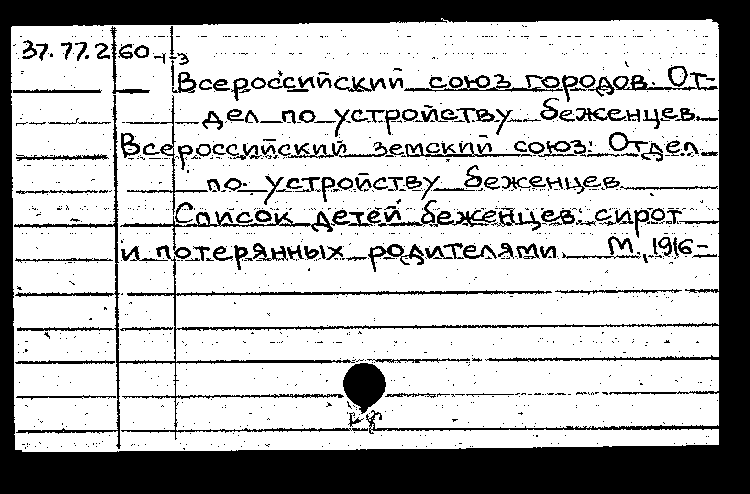 37.77.2.60-1-3
Всероссийский союз городов. От-
дел по устройству беженцев.
Всероссийский земский союз. Отдел
по устройству беженцев
Список детей беженцев: сирот
и потерянных родителями. М., 1916-